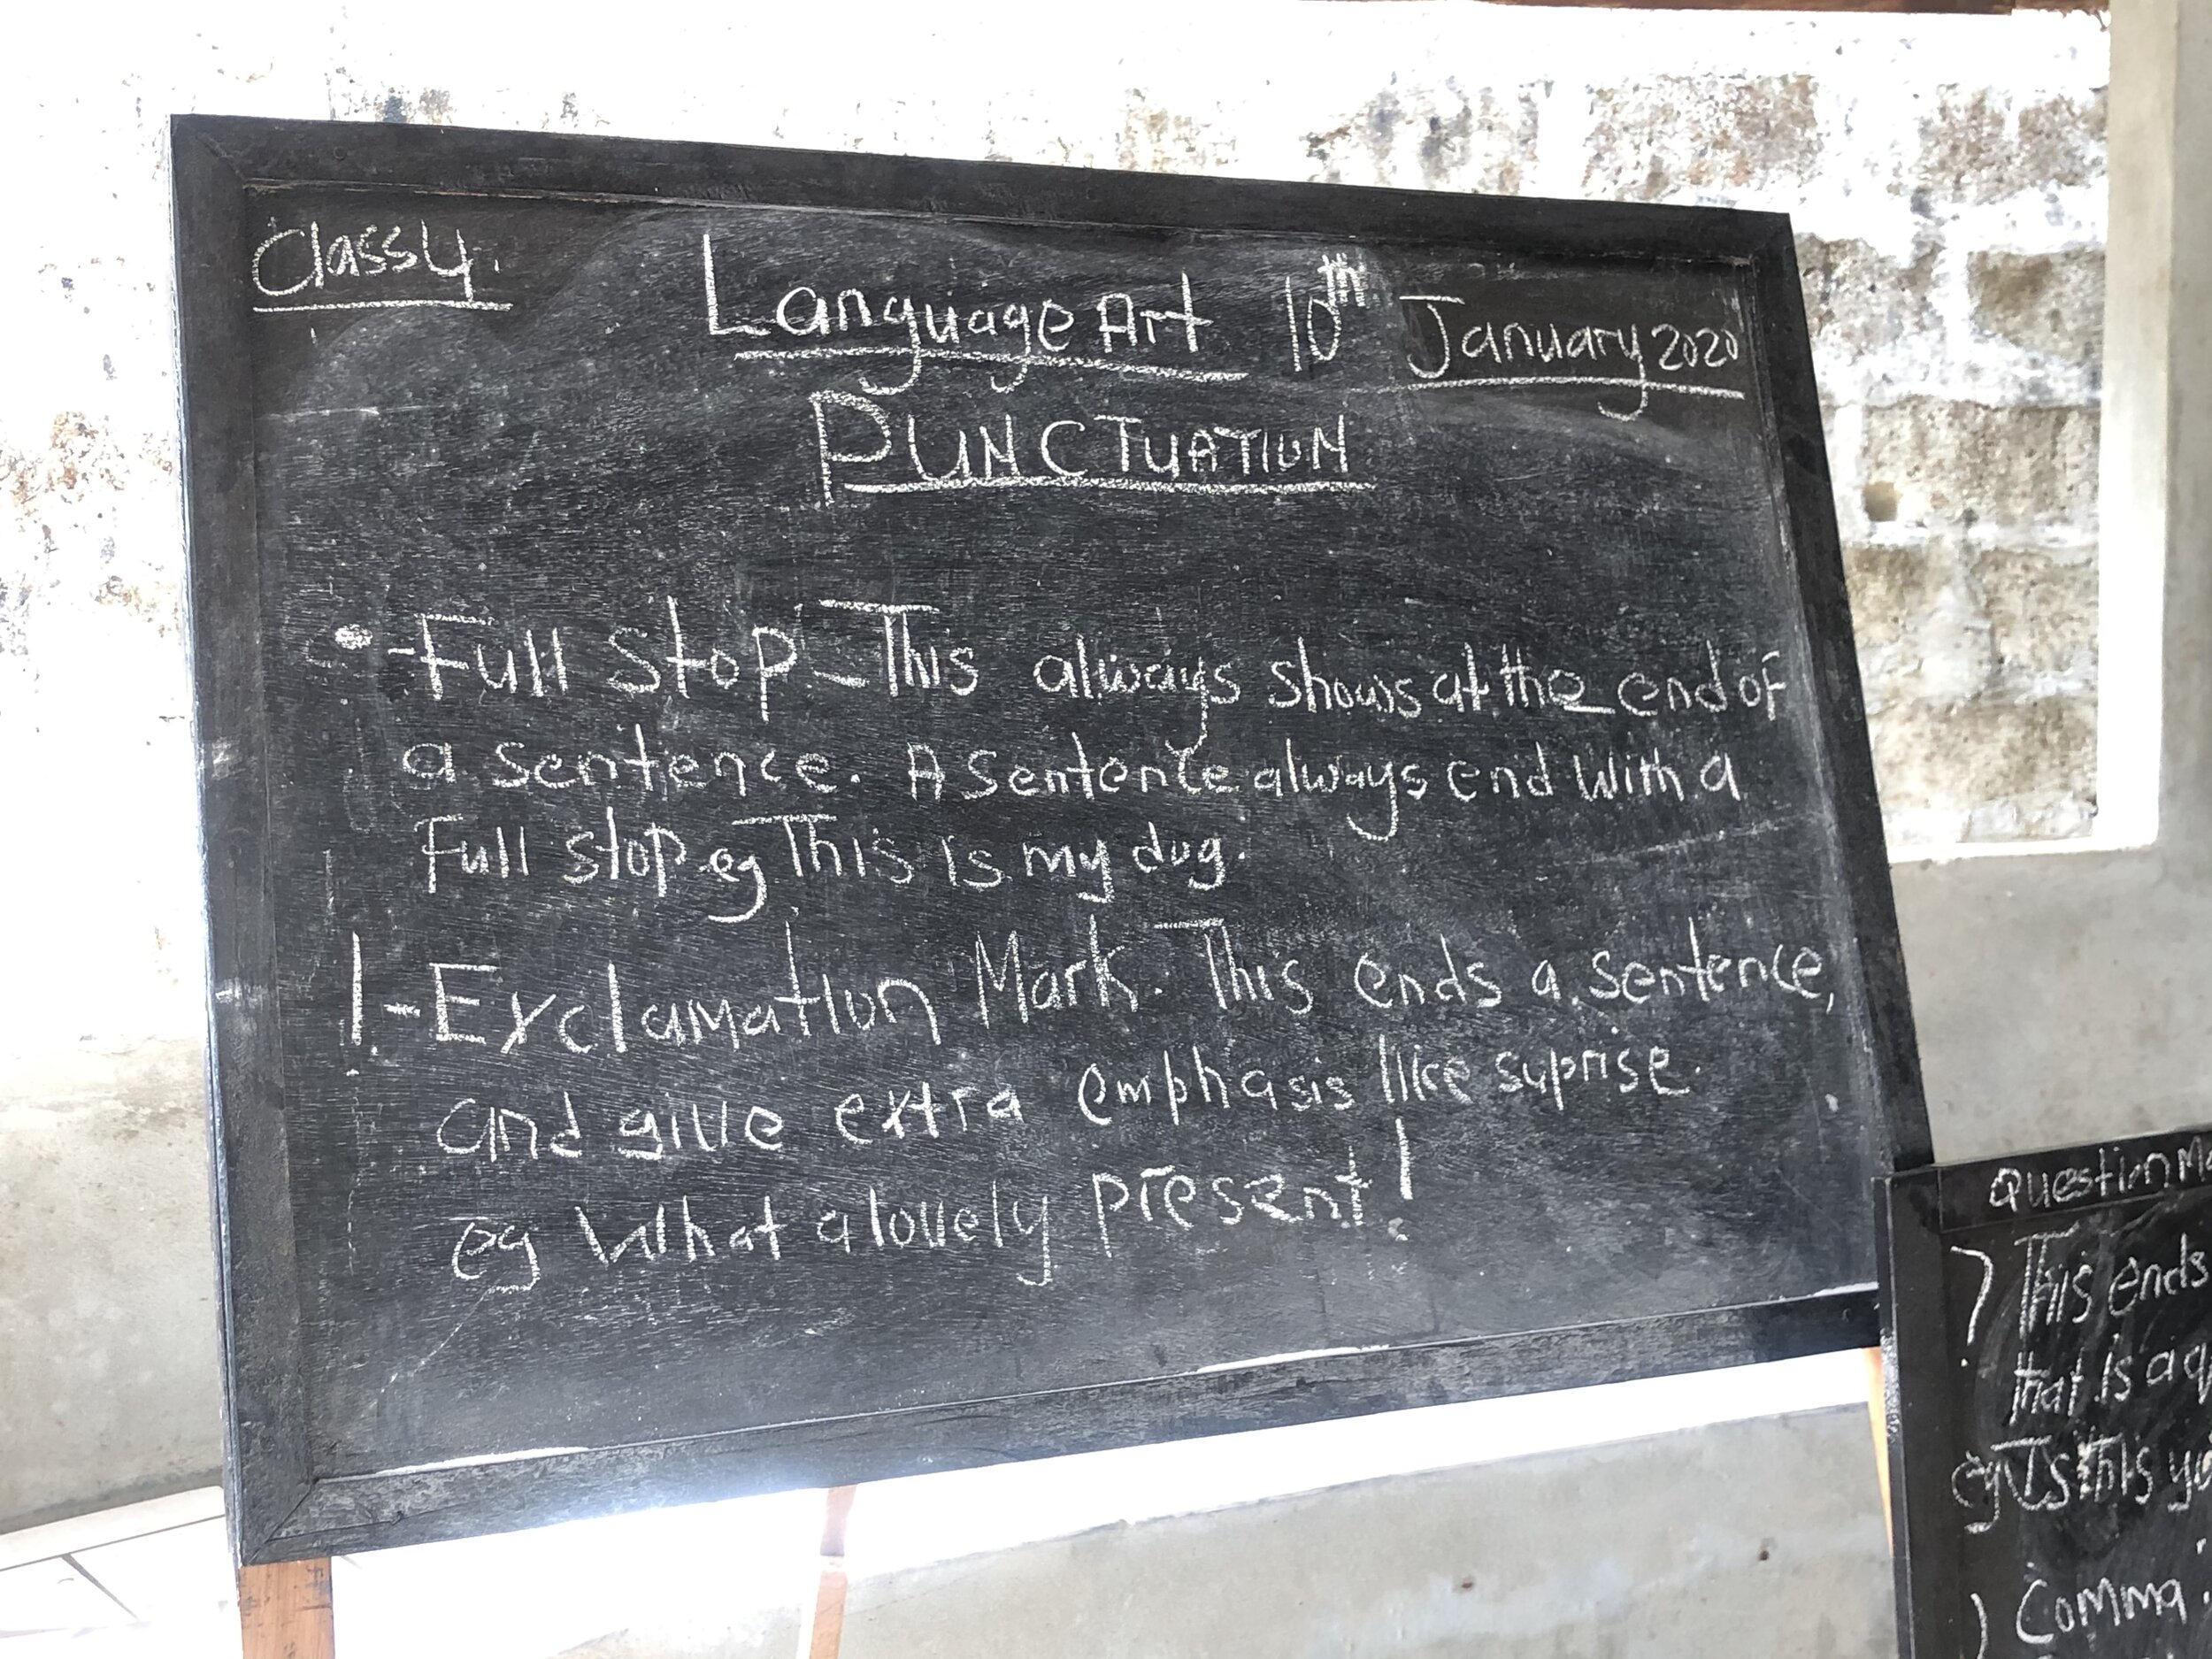 Class 4.
Language Art 10th January 2020
PUNCTUATION
• - Full Stop - This always shows at the end of
a sentence. A sentence always end with a
Full stop eg This is my dog.
! - Exclamation Mark. This ends a sentence,
and give extra emphasis like suprise.
eg What a lovely present!
Question Ma
? This ends
that is a q
eg Is this yo
, Comma.